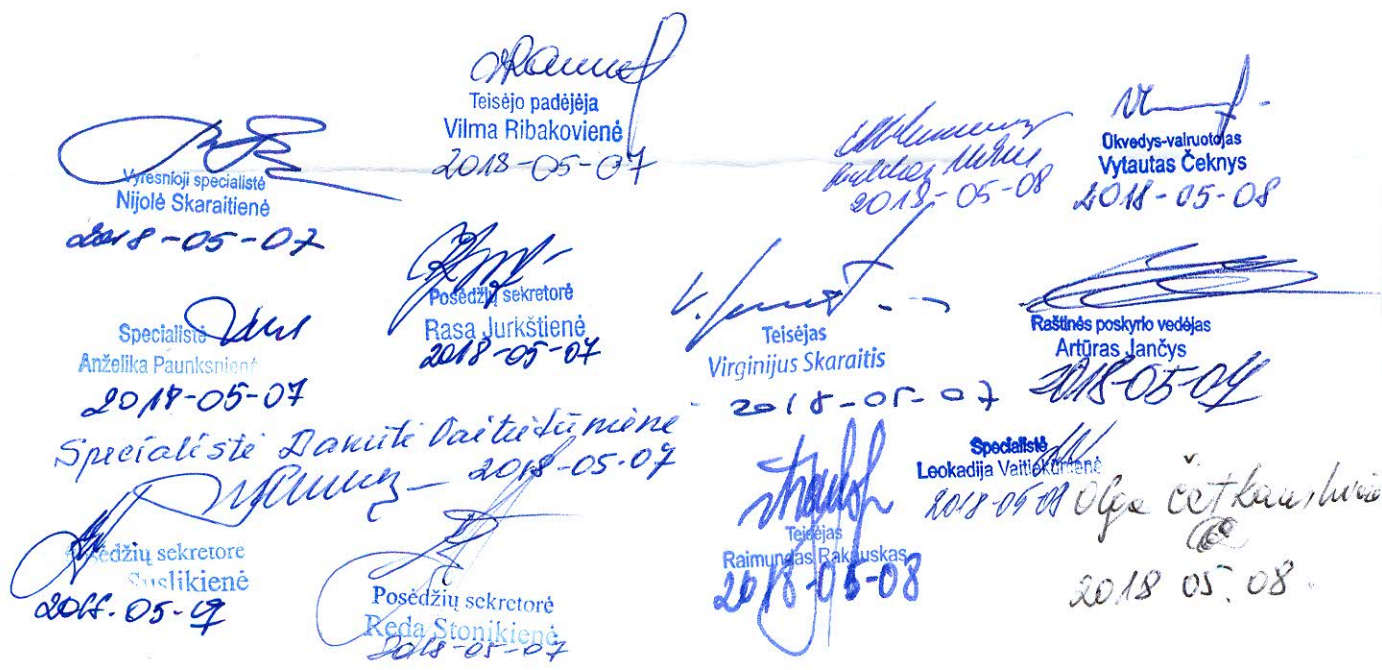 Teisėjo padėjėja
Vilma Ribakovienė
2018-05-07
Vyresnioji specialistė
Nijolė Skaraitienė
2018-05-07
2018-05-08
Ūkvedys-vairuotojas
Vytautas Čeknys
2018-05-08
Specialistė
Anželika Paunksnienė
2018-05-07
Posėdžių sekretorė
Rasa Jurkštienė
2018-05-07
Teisėjas
Virginijus Skaraitis
2018-05-07
Raštinės poskyrio vedėjas
Artūras Jančys
2018-05-07
Specialistė Danutė
2018-05-07
Specialistė
Leokadija Vaitiekūnienė
2018-05-08
Olga
2018 05. 08.
Teisėjas
Raimundas Rakauskas
2018-05-08
Posėdžių sekretorė
Suslikienė
05-07
Posėdžių sekretorė
Reda Stonikienė
2018-05-07